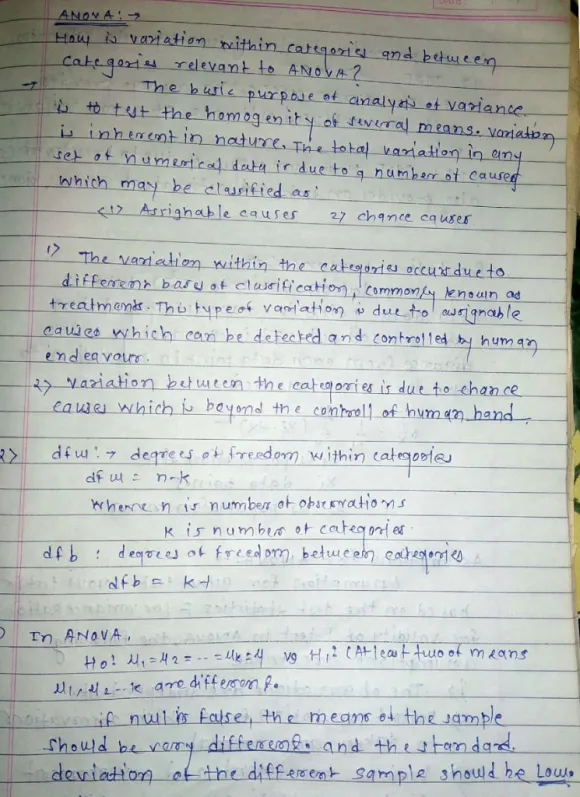 ANOVA: →
How is variation within categories and between
categories relevant to ANOVA?
→ The basic purpose of analysis of variance
is to test the homogenity of several means. variation
is inherent in nature. The total variation in any
set of numerical data is due to a number of causes
which may be classified as:
<1> Assignable causes 2> chance causes
1> The variation within the categories occurs due to
different bases of classification, commonly known as
treatments. This type of variation is due to assignable
causes which can be detected and controlled by human
endeavour.
2> variation between the categories is due to chance
causes which is beyond the controll of human hand.
2> dfw: → degrees of freedom within categories
dfw = n-k
where n is number of observations
k is number of categories.
dfb : degrees of freedom between categories
dfb = k-1
In ANOVA,
H0: μ1 = μ2 = -- = μk = μ vs H1: (At least two of means
μ1, μ2 -- k are different.
if null is false, the means of the sample
should be very different. and the standard.
deviation of the different sample should be Low.